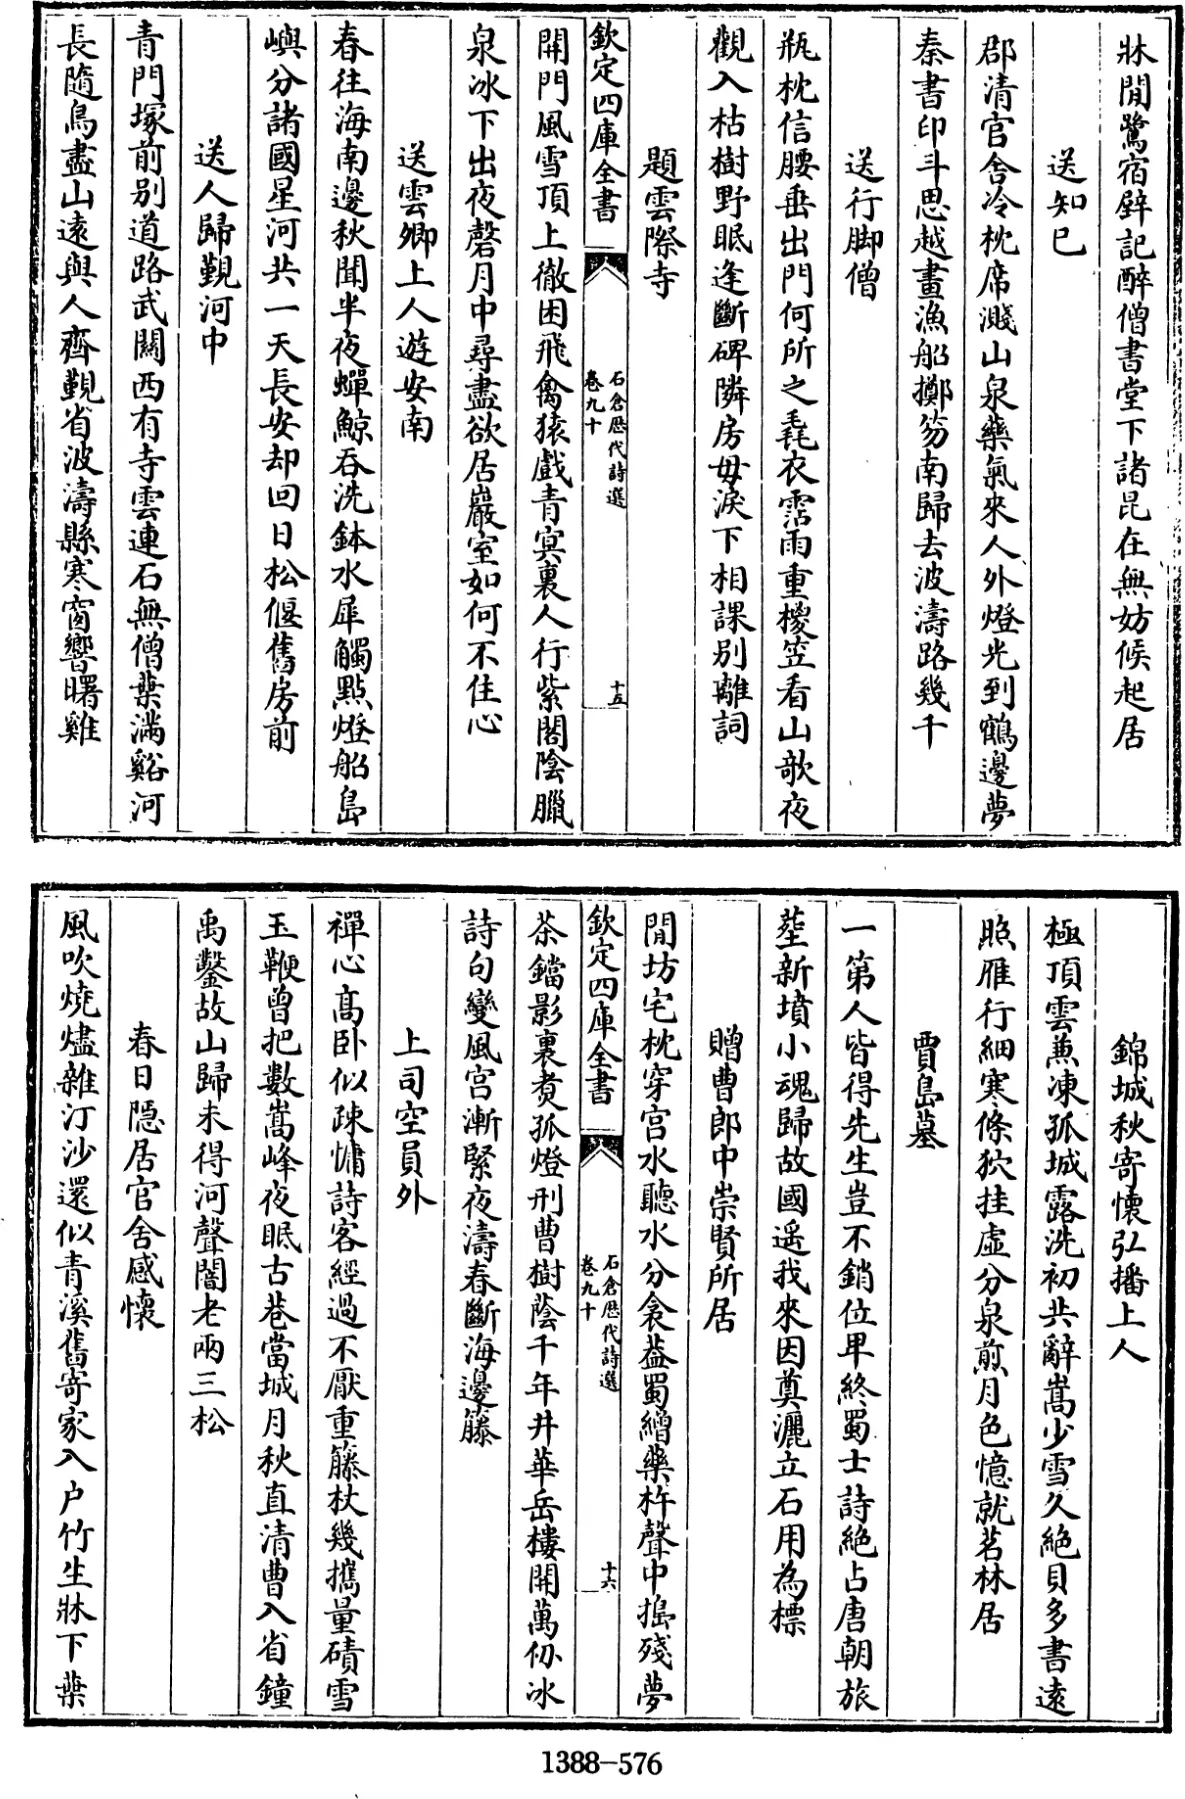 牀閒鷺宿壁記醉僧書堂下諸昆在無妨候起居
送知已
郡清官舍冷枕席濺山泉藥氣來人外燈光到鶴邊夢
秦書印斗思越畫漁船擲笏南歸去波濤路幾千
送行脚僧
瓶枕信腰垂出門何所之毳衣霑雨重椶笠看山欹夜
觀入枯樹野眠逢斷碑隣房毋淚下相課別離詞
題雲際寺
欽定四庫全書
石倉歷代詩選
卷九十
十五
開門風雪頂上徹困飛禽猿戲青冥裏人行紫閣陰臘
泉冰下出夜磬月中尋盡欲居巖室如何不住心
送雲卿上人遊安南
春往海南邊秋聞半夜蟬鯨吞洗鉢水犀觸㸃燈船島
嶼分諸國星河共一天長安却回日松偃舊房前
送人歸覲河中
青門塚前别道路武關西有寺雲連石無僧葉滿谿河
長隨鳥盡山遠與人齊覲省波濤縣寒窗響曙雞
錦城秋寄懷弘播上人
極頂雲兼凍孤城露洗初共辭嵩少雪久絶貝多書遠
照雁行細寒條狖挂虛分泉煎月色憶就茗林居
賈島墓
一第人皆得先生豈不銷位卑終蜀士詩絶占唐朝旅
塟新墳小魂歸故國遥我來因奠灑立石用為標
贈曹郎中崇賢所居
閒坊宅枕穿宮水聽水分衾葢蜀繒藥杵聲中搗殘夢
欽定四庫全書
石倉歷代詩選
卷九十
十六
茶鐺影裏煑孤燈刑曹樹蔭千年井華岳樓開萬仭冰
詩句變風宮漸緊夜濤舂斷海邊藤
上司空員外
禪心髙卧似疎慵詩客經過不厭重籐杖幾攜量磧雪
玉鞭曾把數嵩峰夜眠古巷當城月秋直清曹入省鐘
禹鑿故山歸未得河聲闇老兩三松
春日隱居官舍感懷
風吹燒燼雜汀沙還似青溪舊寄家入户竹生牀下葉
1388-576